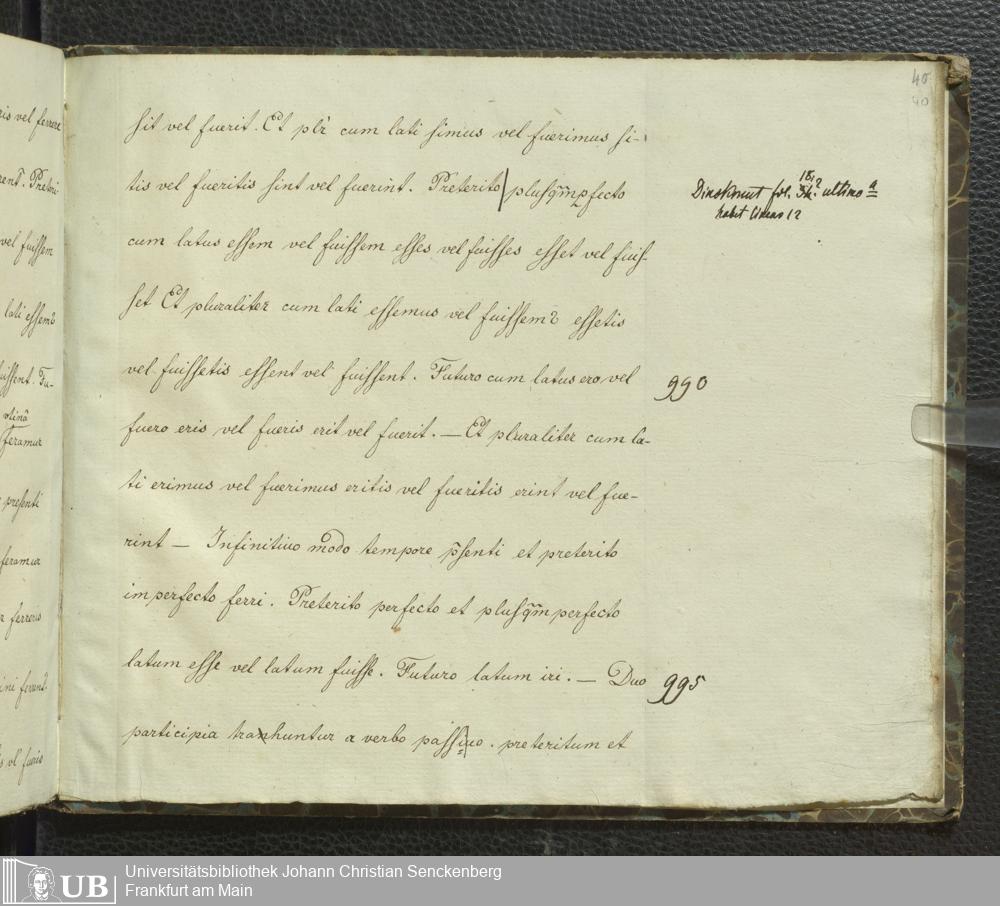 40
40
sit vel fuerit. Et plr̄ cum lati simus vel fuerimus si-
tis vel fueritis sint vel fuerint. Preterito plusq̄m̄pfecto
fol. ultimo a
habet lineas 12
cum latus essem vel fuissem esses vel fuisses esset vel fuis-
set Et pluraliter cum lati essemus vel fuissem2 essetis
vel fuissetis essent vel fuissent. Futuro cum latus ero vel
990
fuero eris vel fueris erit vel fuerit. — Et pluraliter cum la-
ti erimus vel fuerimus eritis vel fueritis erint vel fue-
rint — Infinitiuo modo tempore p̄senti et preterito
imperfecto ferri. Preterito perfecto et plusq̄m̄ perfecto
latum esse vel latum fuisse. Futuro latum iri. — Duo
995
participia trahuntur a verbo passiuo. preteritum et
ris vel ferrere
vel fuissem
lati essem2
uissent. Fu-
feramur
presenti
feramur
r ferreris
ini ferunt.
s vl fueris
UB
Universitätsbibliothek Johann Christian Senckenberg
Frankfurt am Main